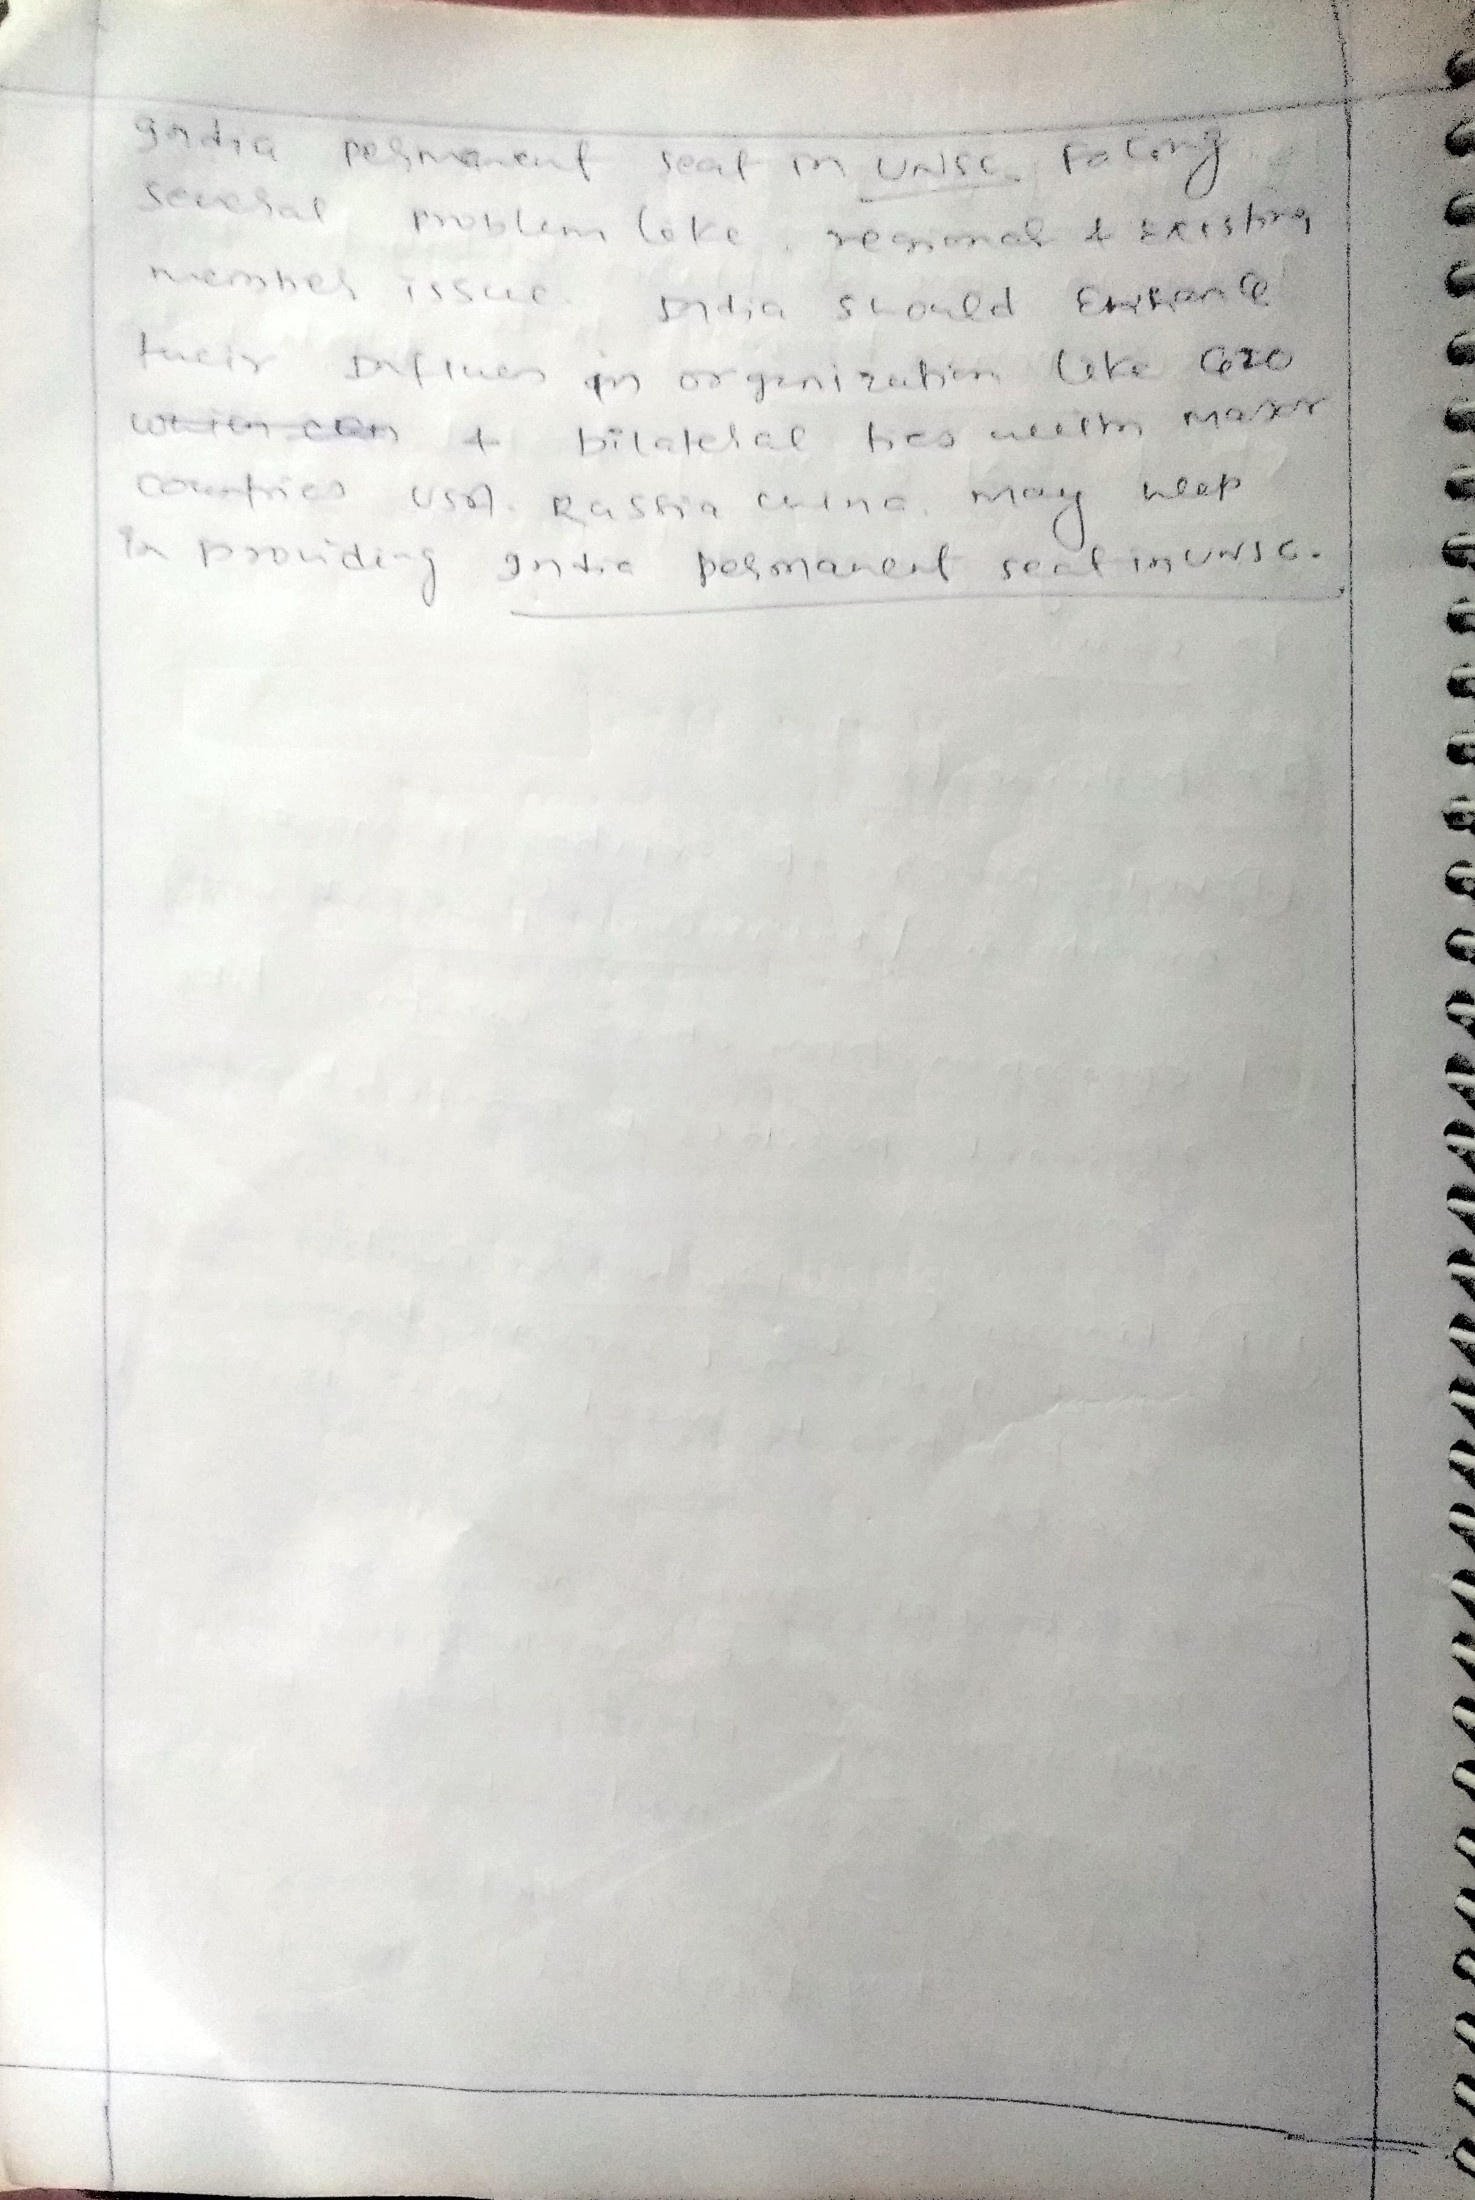 India permanent seat in UNSC. Facing
several problem like, regional + Existing
member issue. India should Enhance
their Influen in organization like G20
+ bilateral ties with Maxr
countries USA. Russia China. may help
in providing India permanent seat in UNSC.